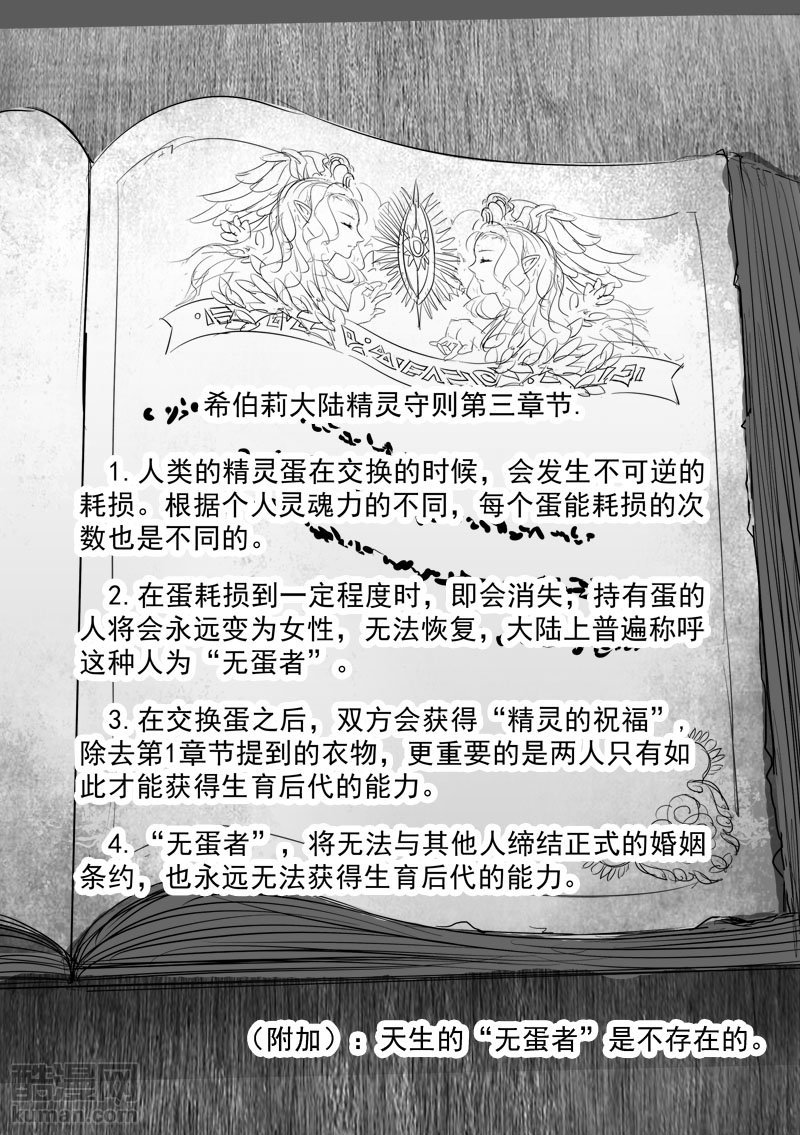 希伯莉大陆精灵守则第三章节.
1.人类的精灵蛋在交换的时候，会发生不可逆的
耗损。根据个人灵魂力的不同，每个蛋能耗损的次
数也是不同的。
2.在蛋耗损到一定程度时，即会消失，持有蛋的
人将会永远变为女性，无法恢复，大陆上普遍称呼
这种人为“无蛋者”。
3.在交换蛋之后，双方会获得“精灵的祝福”，
除去第1章节提到的衣物，更重要的是两人只有如
此才能获得生育后代的能力。
4.“无蛋者”，将无法与其他人缔结正式的婚姻
条约，也永远无法获得生育后代的能力。
（附加）：天生的“无蛋者”是不存在的。
酷漫网
kuman.com